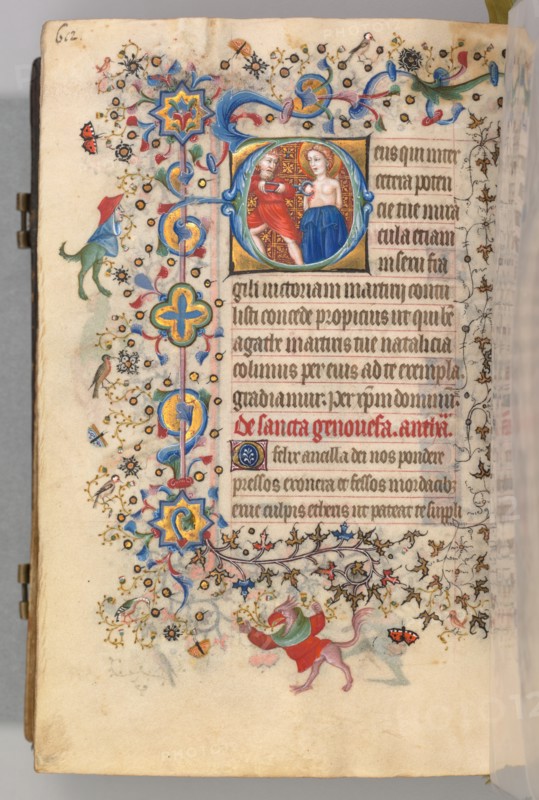 612
eus qui inter
cetera poten
cie tue mira
cula etiam
in sexu fra
gili victoriam martirij contu
listi concede propicius ut qui be
agathe martiris tue natalicia
colimus per eius ad te exempla
gradiamur. per xpm dominum.
de sancta genovefa. antha.
O felix ancilla dei nos pondere
pressos exonera et fessos mordacib;
erue culpis etheris ut pateat te suppli